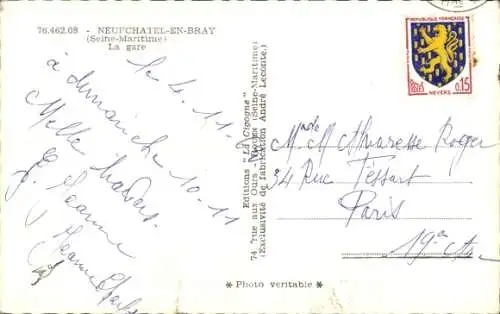 76.462.08 - NEUFCHATEL-EN-BRAY
(Seine-Maritime)
La gare
le 4.11
à dimanche 10-11
Melle
Jeanne
Jeanne
Editions "La Cigogne"
74 rue aux Ours - (Seine-Maritime)
(Exclusivité de fabrication André Leconte.)
* Photo veritable *
REPUBLIQUE FRANÇAISE
POSTES
0,15
NEVERS
Roger
34 Rue Tessart
Paris
19e